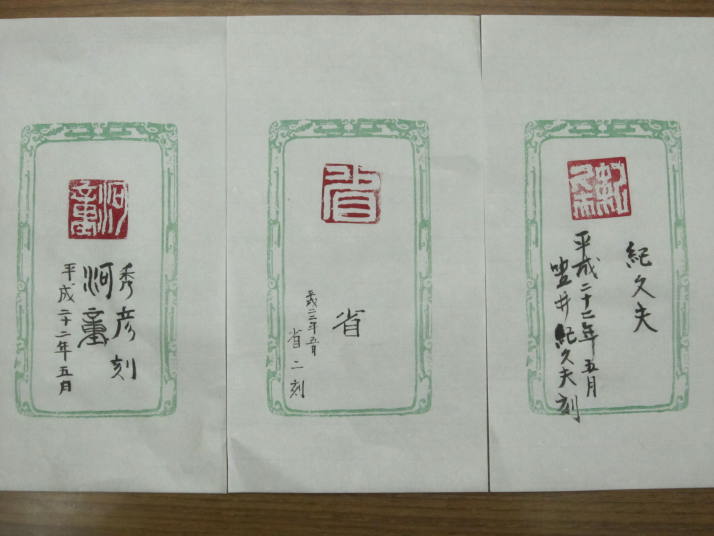 河童
秀彦刻
河童
平成二十二年五月
省
省
平成二二年五月
省二刻
紀久夫
紀久夫
平成二十二年五月
笠井紀久夫刻